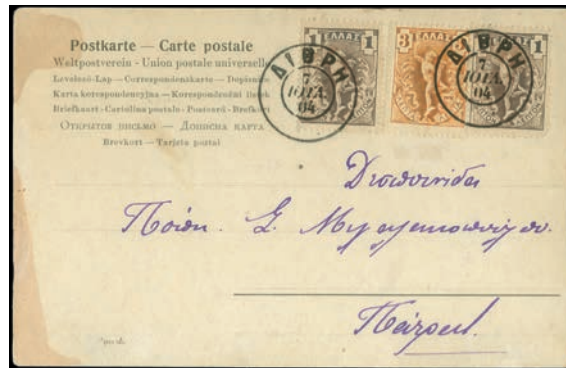 Postkarte — Carte postale
Weltpostverein - Union postale universelle
Levelező-Lap — Correspondenzkarte — Dopisnice
Karta korespondencyjna — Korespondenční lístek
Briefkaart - Cartolina postale - Postcard - Brefkort
Открытое письмо — Дописна карта
Brevkort — Tarjeta postal
1 ΕΛΛΑΣ 1
3 ΕΛΛΑΣ
1
ΔΙΒΡΗ
7
ΙΟΥΛ.
04
ΔΙΒΡΗ
7
ΙΟΥΛ.
04
Δεσποινίδα
Πάτρας.